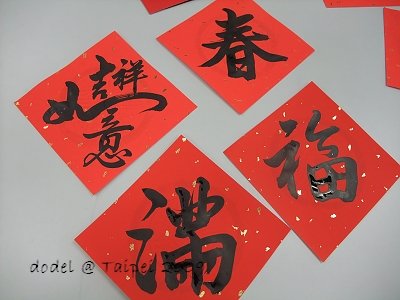 吉祥
如意
春
福
滿
dodel @ Taipei 2009